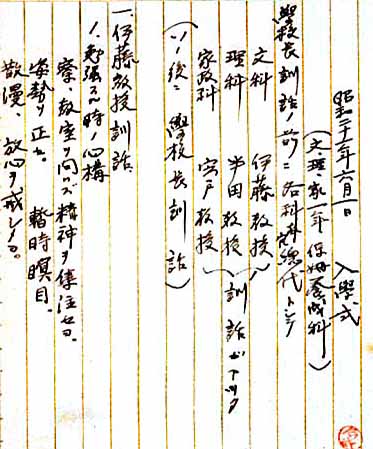 昭和二十一年六月一日　入學式
（文理、家一年　保姆養成科）
學校長訓話ノ前ニ各科ノ總代トシテ
文科　伊藤教授
理科　半田教授　訓話ガアツタ
家政科　宍戸教授
（ソノ後ニ　學校長訓話）
一、伊藤教授訓話、
1、勉強スル時ノ心構
寮、教室ヲ問ハズ精神ヲ傾注セヨ。
姿勢ヲ正セ。　暫時瞑目。
散漫、放心ヲ戒シメヨ。